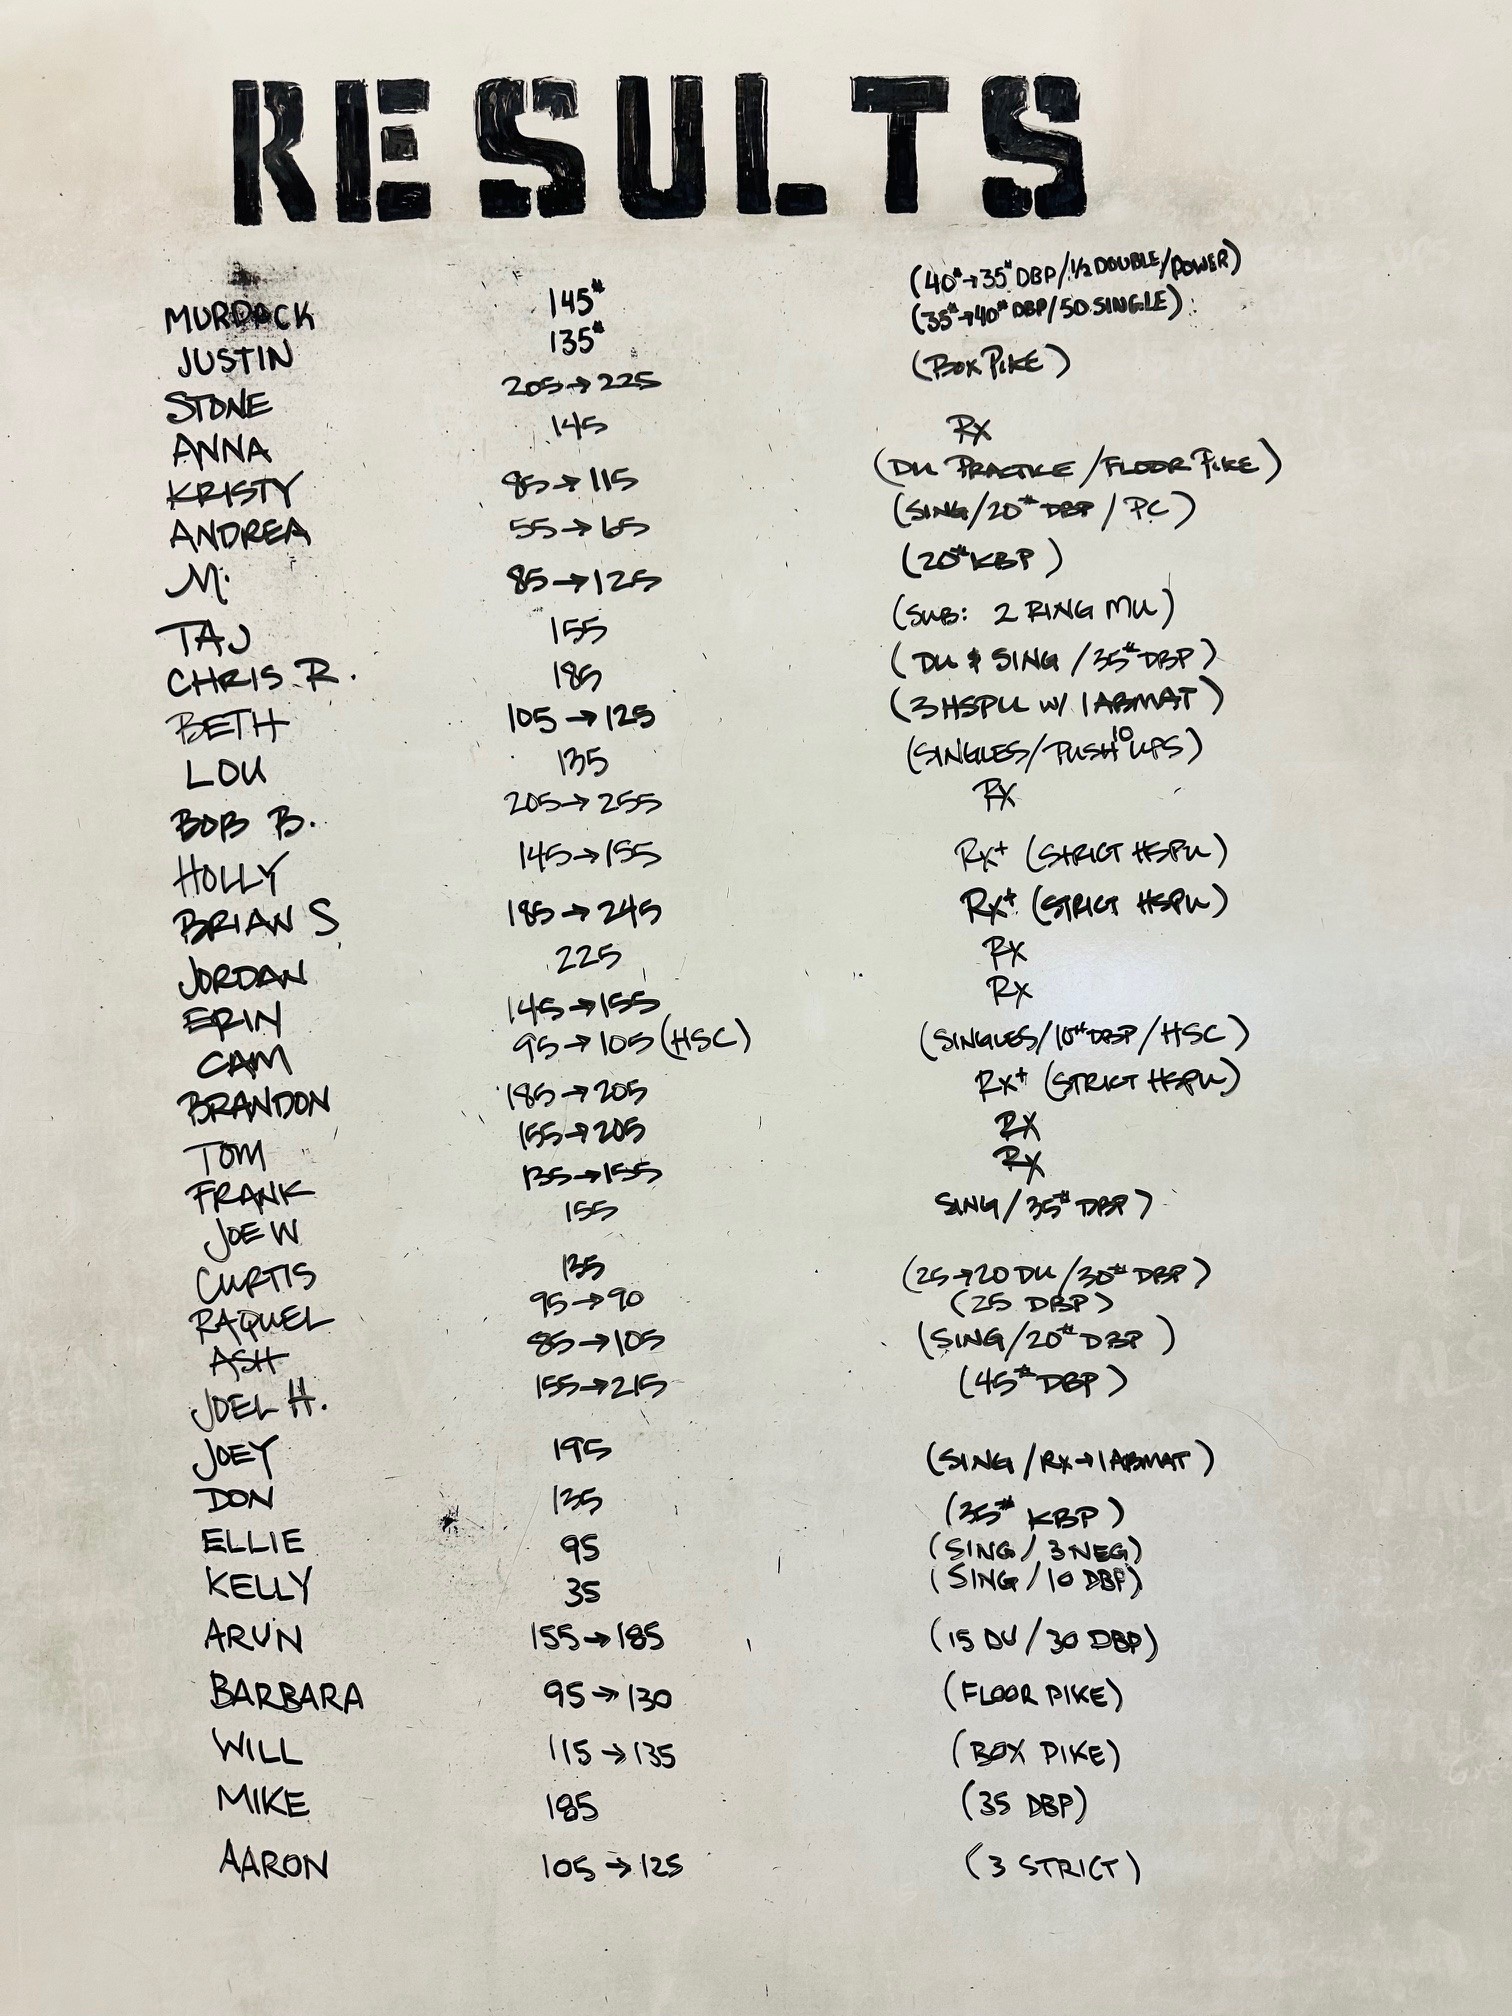 RESULTS
MURDACK 145# (40#→35# DBP/1/2 DOUBLE/POWER)
JUSTIN 135# (35#→40# DBP/50 SINGLE)
STONE 205→225 (BOX PIKE)
ANNA 145 RX
KRISTY 85→115 (DU PRACTICE/FLOOR PIKE)
ANDREA 55→65 (SING/20# DBP/PC)
M. 85→125 (20# KBP)
TAJ 155 (SUB: 2 RING MU)
CHRIS R. 185 (DU & SING/35# DBP)
BETH 105→125 (3 HSPU W/ 1 ABMAT)
LOU 135 (SINGLES/10 PUSH UPS)
BOB B. 205→255 RX
HOLLY 145→155 RX+ (STRICT HSPU)
BRIAN S 185→245 RX+ (STRICT HSPU)
JORDAN 225 RX
ERIN 145→155 RX
CAM 95→105 (HSC) (SINGLES/10# DBP/HSC)
BRANDON 185→205 RX+ (STRICT HSPU)
TOM 155→205 RX
FRANK 135→155 RX
JOE W 155 SING/35# DBP)
CURTIS 135 (25→20 DU/30# DBP)
RAQUEL 95→90 (25 DBP)
ASH 85→105 (SING/20# DBP)
JOEL H. 155→215 (45# DBP)
JOEY 195 (SING/RX→1 ABMAT)
DON 135 (35# KBP)
ELLIE 95 (SING/3 NEG)
KELLY 35 (SING/10 DBP)
ARUN 155→185 (15 DU/30 DBP)
BARBARA 95→130 (FLOOR PIKE)
WILL 115→135 (BOX PIKE)
MIKE 185 (35 DBP)
AARON 105→125 (3 STRICT)